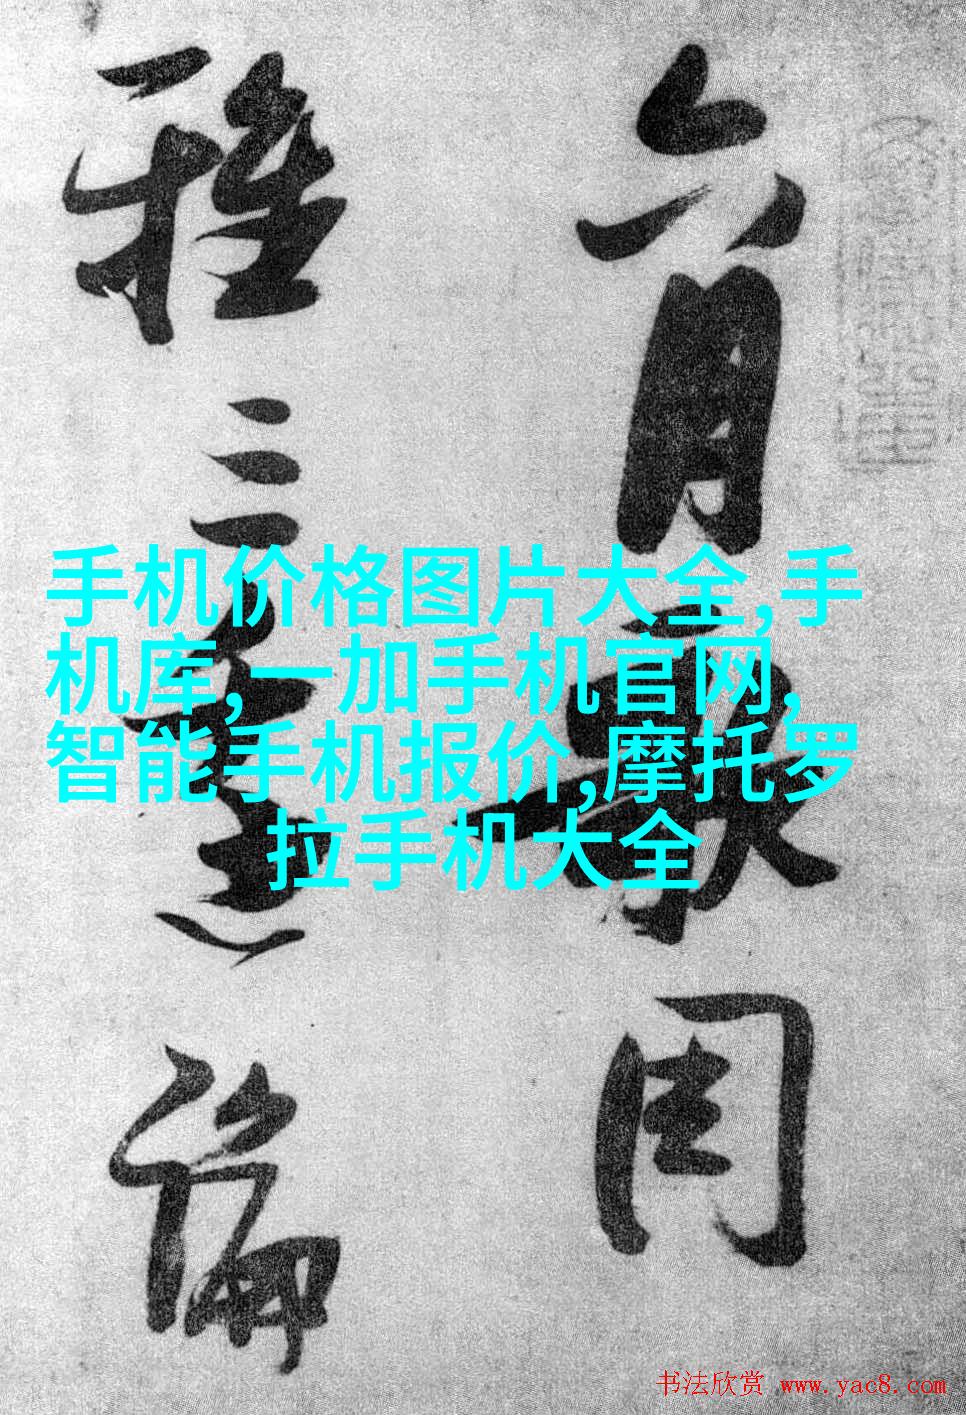 六月
雅三
手机价格图片大全,手
机库,一加手机官网,
智能手机报价,摩托罗
拉手机大全
书法欣赏 www.yac8.com